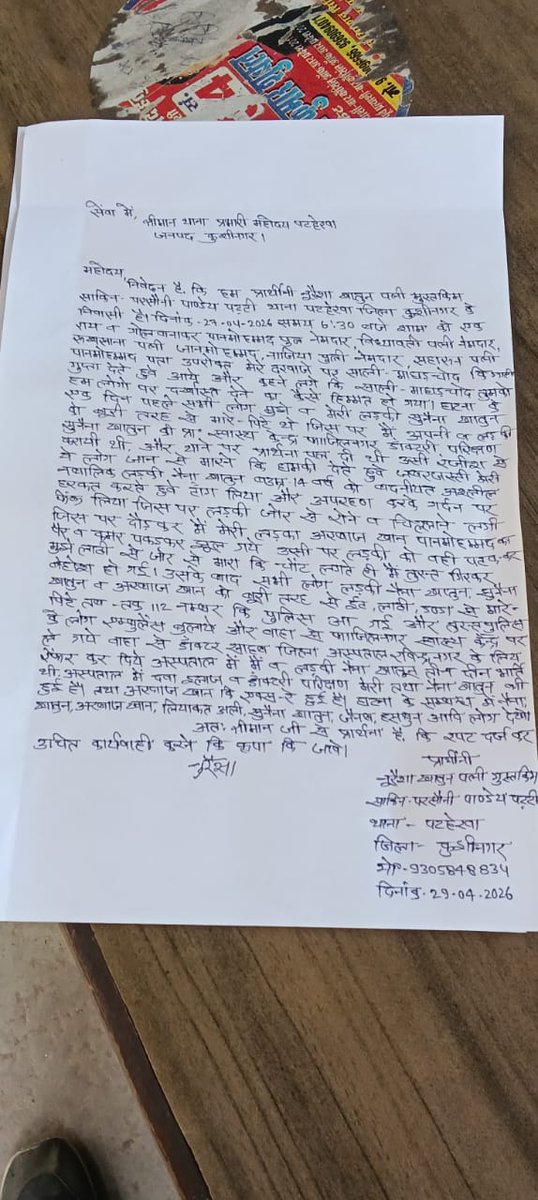 सेवा में,
श्रीमान थाना प्रभारी महोदय पटहेरवा
जनपद कुशीनगर।
महोदय,
निवेदन है, कि हम प्रार्थीनी नुरैशा खातुन पत्नी मुस्तकिम
साकिन- परसौनी पाण्डेय पट्टी थाना पटहेरवा जिला कुशीनगर के
निवासी है। दिनांक-27-04-2026 समय 6:30 बजे शाम को एक
राय व गोलबनाकर पानमोहम्मद पुत्र नेमदार, विध्यावती पत्नी नेमदार,
रुखसाना पत्नी जानमोहम्मद, नाजिया पुत्री नेमदार, सहारुन पत्नी
पानमोहम्मद पता उपरोक्त मेरे दरवाजे पर साली- माधड़चोद कि गाली
गुप्ता देते हुवे आये और कहने लगे कि साली- माधड़चोद तुमको
हम लोगो पर दरखास्त देने का कैसे हिम्मत हो गया। घटना के
एक दिन पहले सभी लोग मुझे व मेरी लड़की सुनैना खातुन
को बुरी तरह से मारे- पिटे थे जिस पर मैं अपनी व लड़की
सुनैना खातुन को प्रा. स्वास्थ्य केन्द्र फाजिलनगर डाक्टरी परिक्षण
करायी थी, और थाने पर प्रार्थना पत्र दी थी उसी रंजीश से
ये लोग जान से मारने कि धमकी देते हुवे जबरजस्ती मेरी
नबालिक लड़की नैना खातुन उम्र 14 वर्ष को बादनीयत अश्लील
हरकत करते हुवे टांग लिया और अपहरण करके गर्दन पर
लिया जिस पर लड़की जोर से रोने व चिल्लाने लगी
जिस पर दौड़कर मैं मेरी लड़का अरबाज खान पानमोहम्मद का
पैर व कमर पकड़कर गये उसी पर लड़की को वही पटक कर
मुझे लाठी से जोर से मारा कि चोट लगते ही मैं तुरन्त गिरकर
बेहोश हो गई। उसके बाद सभी लोग लड़की नैना खातुन, सुनैना
खातुन व अरबाज खान को बुरी तरह से ईंट, लाठी, डण्डा से मारे-
पिटे तब- तक 112 नम्बर कि पुलिस आ गई और तुरन्त पुलिस
के लोग एम्बुलेंस बुलाये और वहा से फाजिलनगर स्वास्थ्य केन्द्र पर
ले गये वाहा से डाक्टर साहब जिला अस्पताल रविन्द्रनगर के लिये
रेफर कर दिये अस्पताल में मैं व लड़की नैना खातुन तीन दीन भर्ती
थी, अस्पताल में दवा इलाज व डाक्टरी परिक्षण मेरी तथा नैना खातुन की
हुई है। तथा अरबाज खान कि एक्स-रे हुई है। घटना के सम्बन्ध में नैना
खातुन, अरबाज खान, लियाकत अली, सुनैना खातुन, जैनब, हसबुन आदि लोग देखे।
अतः श्रीमान जी से प्रार्थना है, कि रपट दर्ज कर
उचित कार्यवाही करने कि कृपा कि जावे।
नुरैशा
प्रार्थीनी
नुरैशा खातुन पत्नी मुस्तकिम
साकिन- परसौनी पाण्डेय पट्टी
थाना- पटहेरवा
जिला- कुशीनगर
मो०-9305848834
दिनांक- 29-04-2026